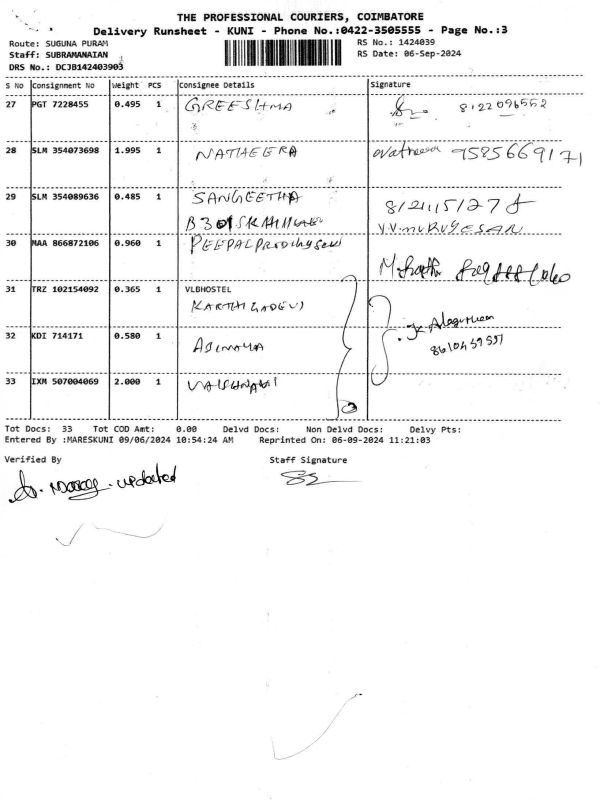 THE PROFESSIONAL COURIERS, COIMBATORE
Delivery Runsheet - KUNI - Phone No.:0422-3505555 - Page No.:3
Route: SUGUNA PURAM RS No.: 1424039
Staff: SUBRAMANAIAN RS Date: 06-Sep-2024
DRS No.: DCJB142403903
S No Consignment No Weight PCS Consignee Details Signature
27 PGT 7228455 0.495 1 GREESHMA 8122096552
28 SLM 354073698 1.995 1 NATHEERA 9585669171
29 SLM 354089636 0.485 1 SANGEETHA
V.V.MURUGESAN
30 MAA 866872106 0.960 1 PEEPAL
31 TRZ 102154092 0.365 1 VLBHOSTEL
KARTHIGADEVI
32 KDI 714171 0.580 1
33 IXM 507004069 2.000 1 VAISHNAVI
Tot Docs: 33 Tot COD Amt: 0.00 Delvd Docs: Non Delvd Docs: Delvy Pts:
Entered By :MARESKUNI 09/06/2024 10:54:24 AM Reprinted On: 06-09-2024 11:21:03
Verified By Staff Signature
updated